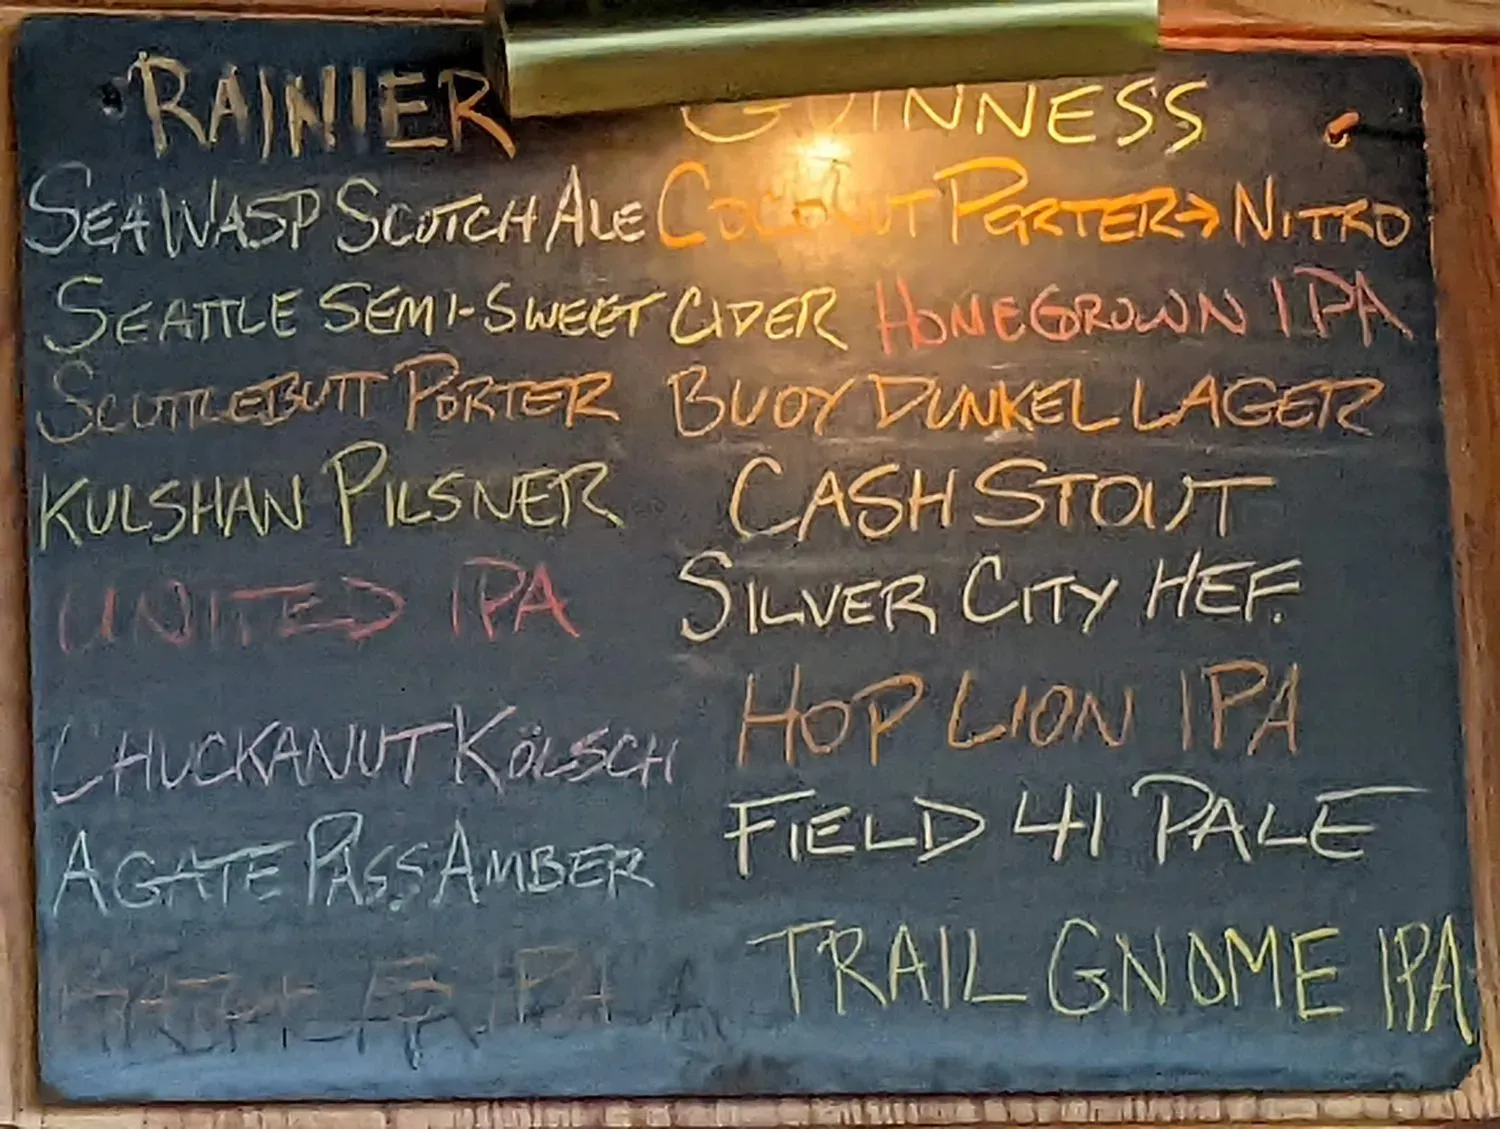 RAINIER
GUINNESS
SEAWASP SCOTCH ALE
COCONUT PORTER→NITRO
SEATTLE SEMI-SWEET CIDER
HOMEGROWN IPA
SCUTTLEBUTT PORTER
BUOY DUNKEL LAGER
KULSHAN PILSNER
CASH STOUT
UNITED IPA
SILVER CITY HEF.
HOP LION IPA
CHUCKANUT KÖLSCH
FIELD 41 PALE
AGATE PASS AMBER
TRAIL GNOME IPA
IPA